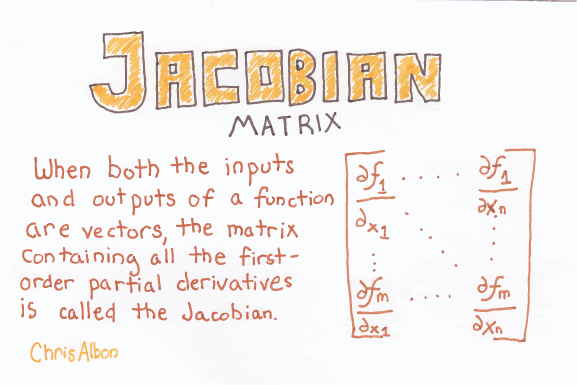 JACOBIAN
MATRIX
When both the inputs
and outputs of a function
are vectors, the matrix
containing all the first-
order partial derivatives
is called the Jacobian.
∂f₁/∂x₁ .... ∂f₁/∂xₙ
⋮ ⋱ ⋮
∂fₘ/∂x₁ .... ∂fₘ/∂xₙ
Chris Albon